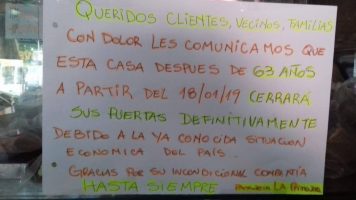 QUERIDOS CLIENTES, VECINOS, FAMILIAS
CON DOLOR LES COMUNICAMOS QUE
ESTA CASA DESPUES DE 63 AÑOS
A PARTIR DEL 18/01/19 CERRARÁ
SUS PUERTAS DEFINITIVAMENTE
DEBIDO A LA YA CONOCIDA SITUACION
ECONOMICA DEL PAIS.
GRACIAS POR SU INCONDICIONAL COMPAÑIA
HASTA SIEMPRE LA